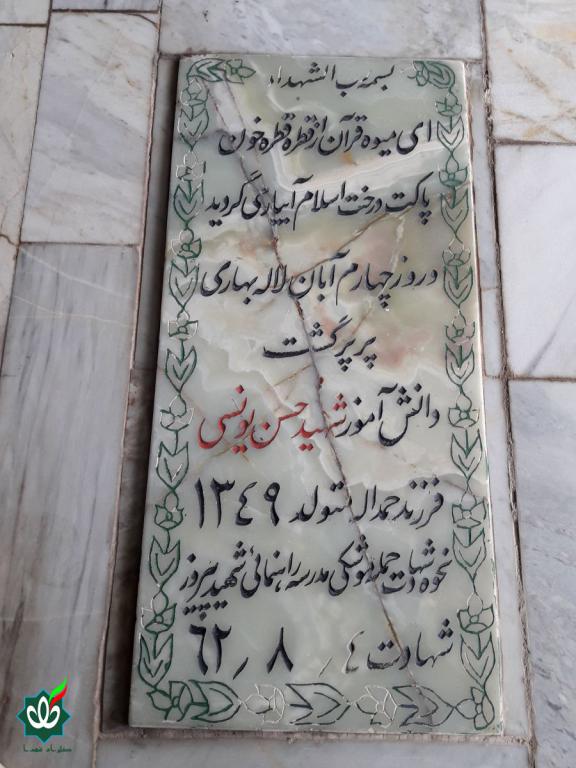 بسمه رب الشهداء
ای میوه قرآن از قطره قطره خون
پاکت درخت اسلام آبیاری گردید
در روز چهارم آبان لاله بهاری
پرپر گشت
دانش آموز شهید حسن یونسی
فرزند حمداله متولد ۱۳٤۹
نحوه شهادت حمله موشکی مدرسه راهنمائی شهید پیروز
شهادت ٤ / ۸ / ٦۲